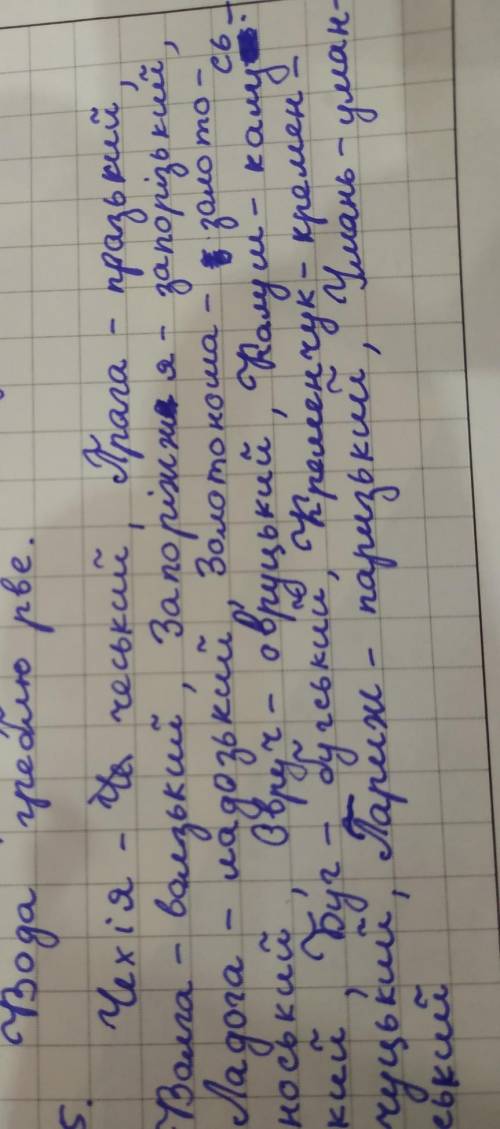 Вода греблю рве.
5. Чехія - чеський, Прага - празький,
Волга - волзький, Запоріжжя - запорізький,
Ладога - ладозький, Золотоноша - золото-
носький, Овруч - овруцький, Калуш - калусь-
кий, Буг - бугський, Кременчук - кремен-
чуцький, Париж - паризький, Умань - уман-
ський